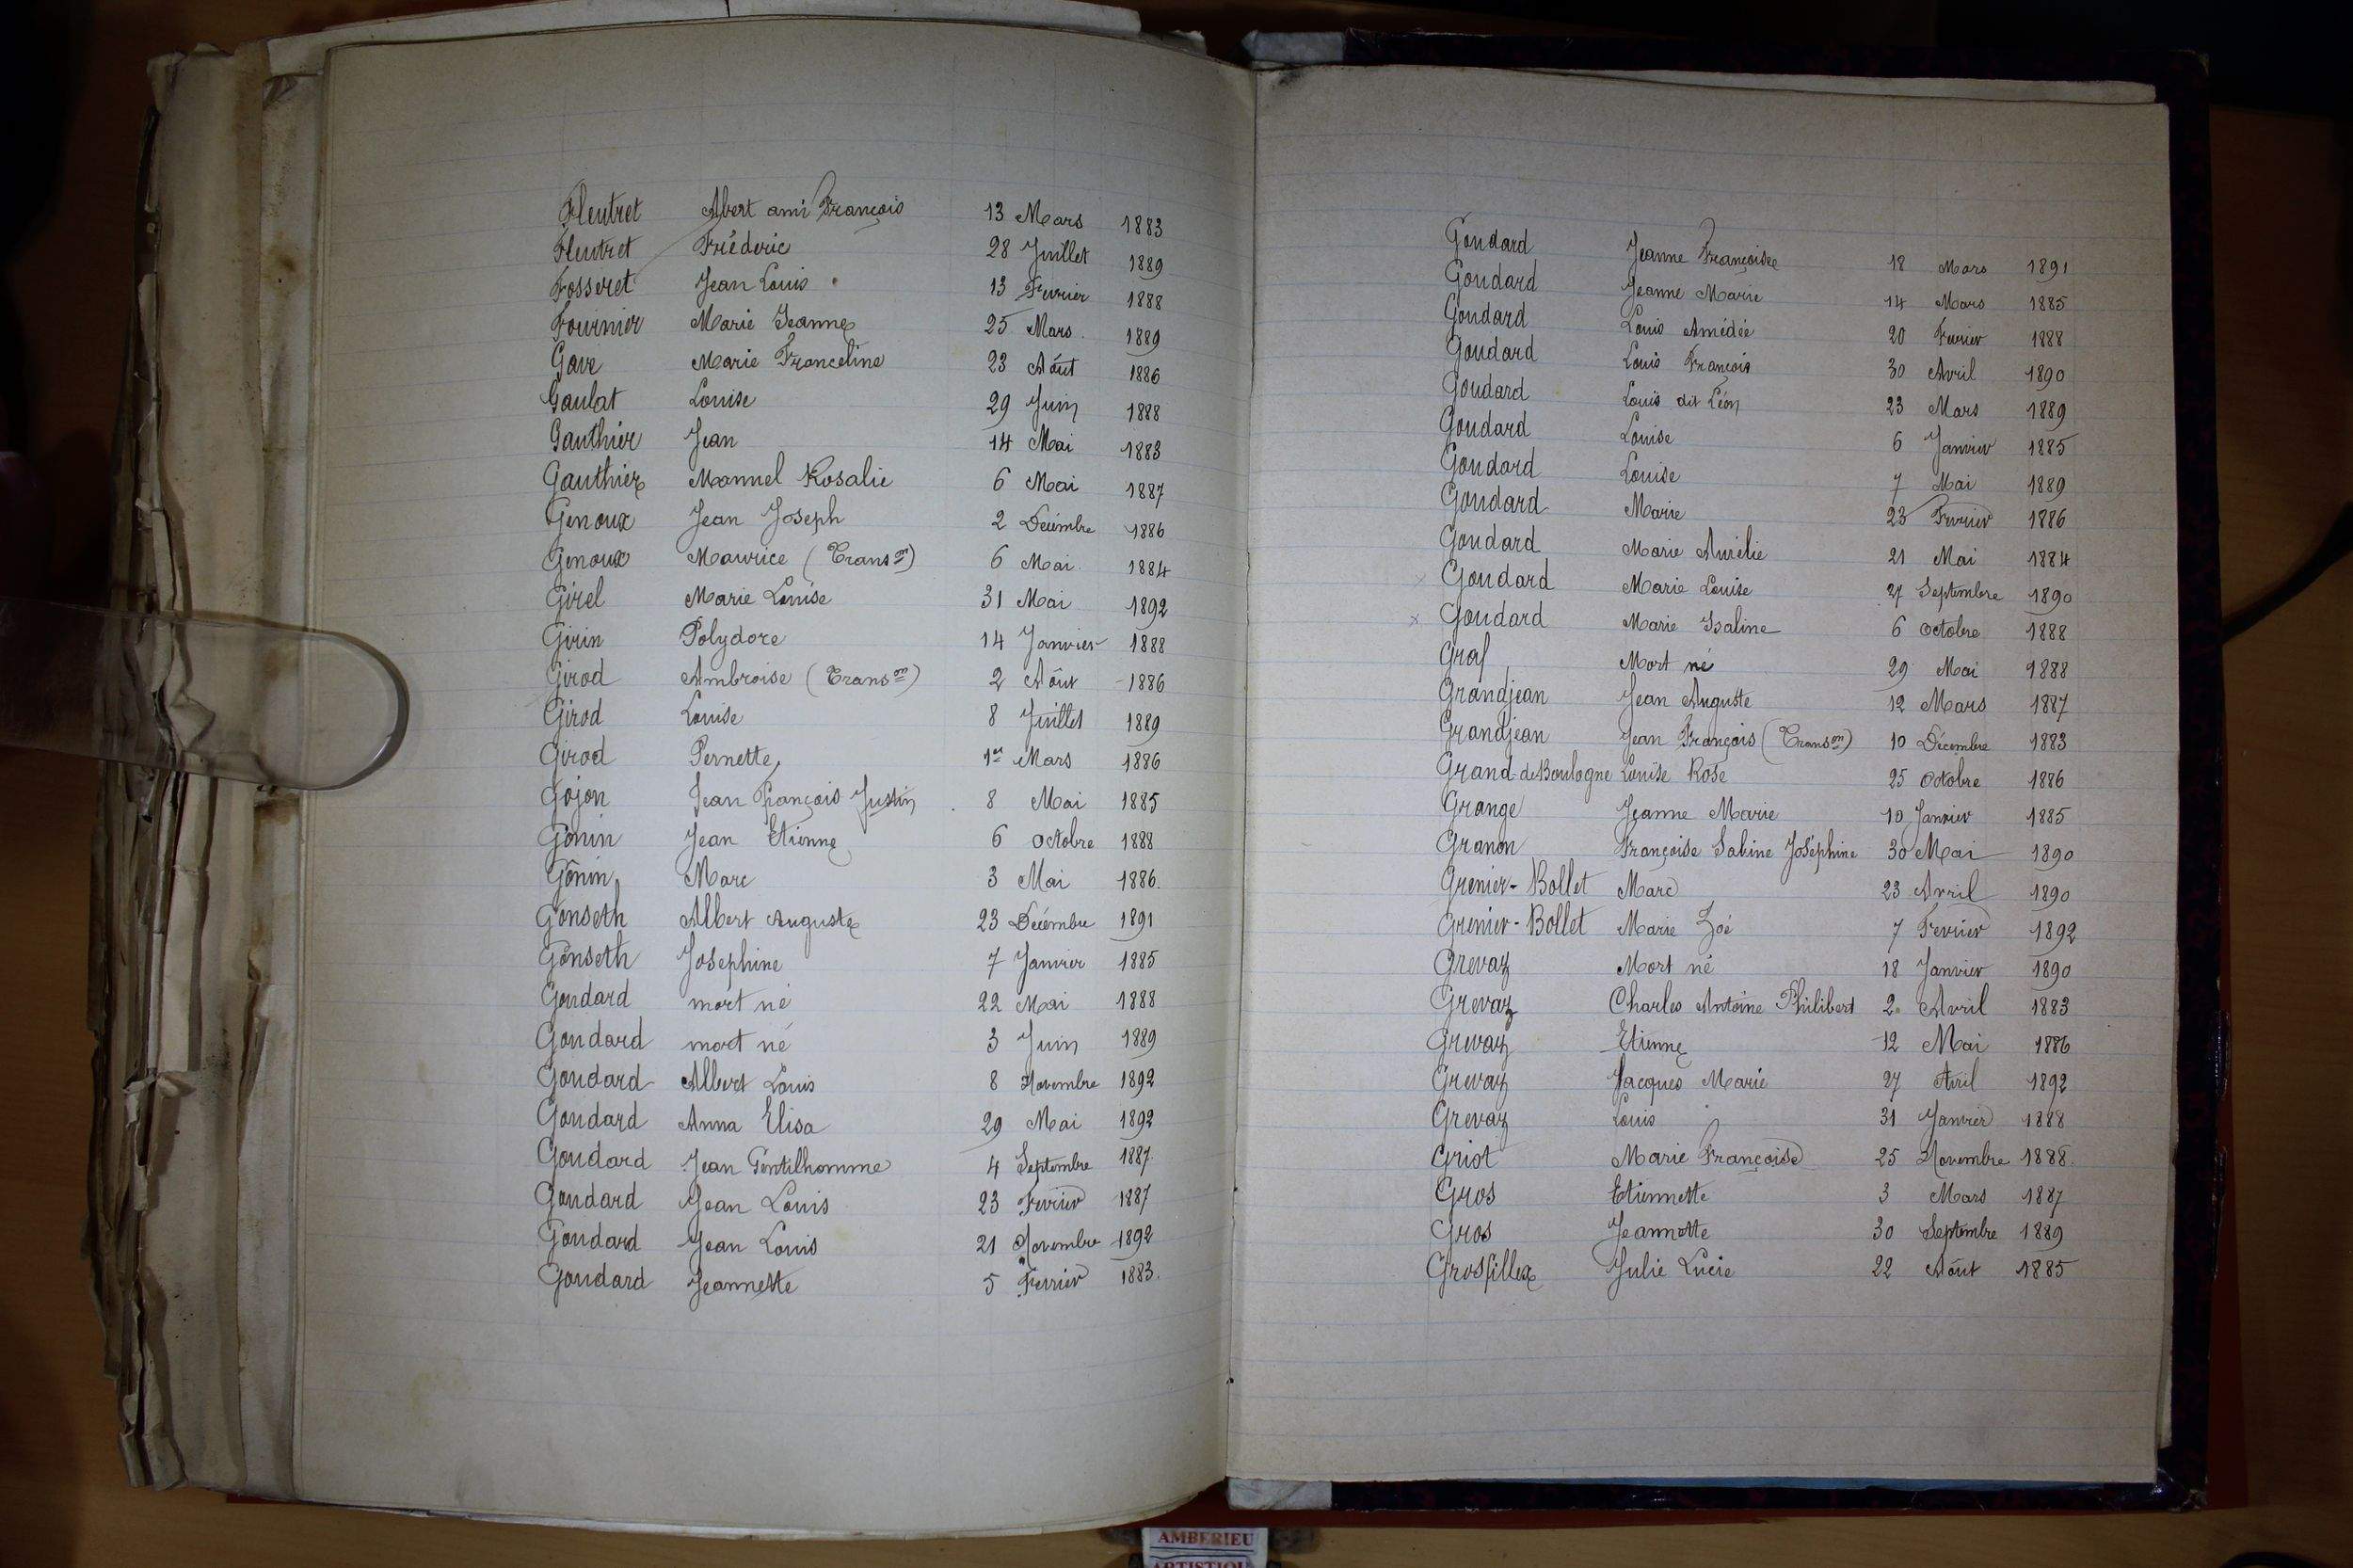 Fleutret Abert ami François 13 Mars 1883
Fleutret Fréderic 28 Juillet 1889
Fosseret Jean Louis 13 Fevrier 1888
Fournier Marie Jeanne 25 Mars 1889
Gave Marie Franceline 23 Aôut 1886
Gaulat Louise 29 Juin 1888
Gauthier Jean 14 Mai 1883
Gauthier Mannel Rosalie 6 Mai 1887
Genoux Jean Joseph 2 Decembre 1886
Genoux Maurice (Transon) 6 Mai 1884
Girel Marie Louise 31 Mai 1892
Girin Polydore 14 Janvier 1888
Girod Ambroise (Transon) 2 Aôut 1886
Girod Louise 8 Juillet 1889
Girod Pernette 1er Mars 1886
Gojon Jean François Justin 8 Mai 1885
Gonin Jean Etienne 6 octobre 1888
Gonin Marc 3 Mai 1886.
Gonseth Albert Auguste 23 Décembre 1891
Gonseth Josephine 7 Janvier 1885
Goudard mort né 22 Mai 1888
Goudard mort né 3 Juin 1889
Goudard Albert Louis 8 Novembre 1892
Goudard Anna Elisa 29 Mai 1892
Goudard Jean Gentilhomme 4 Septembre 1887.
Goudard Jean Louis 23 Fevrier 1887
Goudard Jean Louis 21 Novembre 1892
Goudard Jeannette 5 Fevrier 1883.
Goudard Jeanne Françoise 18 Mars 1891
Goudard Jeanne Marie 14 Mars 1885
Goudard Louis Amédée 20 Fevrier 1888
Goudard Louis François 30 Avril 1890
Goudard Louis dit Léon 23 Mars 1889
Goudard Louise 6 Janvier 1885
Goudard Louise 7 Mai 1889
Goudard Marie 23 Fevrier 1886
Goudard Marie Aurélie 21 Mai 1884
x Goudard Marie Louise 27 Septembre 1890
x Goudard Marie Isaline 6 octobre 1888
Graf Mort né 29 Mai 1888
Grandjean Jean Auguste 12 Mars 1887
Grandjean Jean François (Transon) 10 Décembre 1883
Grand-de Boulogne Louise Rose 25 octobre 1886
Grange Jeanne Marie 10 Janvier 1885
Granon Françoise Sabine Joséphine 30 Mai 1890
Grenier-Bollet Marc 23 Avril 1890
Grenier-Bollet Marie Zoé 7 Fevrier 1892
Grevaz Mort né 18 Janvier 1890
Grevaz Charles Antoine Philibert 2 Avril 1883
Grevaz Etienne 12 Mai 1886
Grevaz Jacques Marie 27 Avril 1892
Grevaz Louis 31 Janvier 1888
Griot Marie Françoise 25 Novembre 1888.
Gros Etiennette 3 Mars 1887
Gros Jeannette 30 Septembre 1889
Grosfillex Julie Lucie 22 Aôut 1885
AMBERIEU